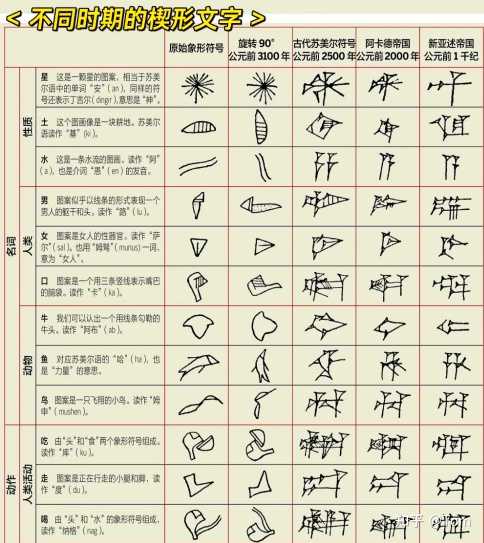 < 不同时期的楔形文字 >
原始象形符号
旋转 90°
公元前 3100 年
古代苏美尔符号
公元前 2500 年
阿卡德帝国
公元前 2000 年
新亚述帝国
公元前 1 千纪
名词
性质
星 这是一颗星的图案，相当于苏美
尔语中的单词“安”（an），同样的符
号还表示丁吉尔（dingir），意思是“神”。
土 这个图画像是一块耕地。苏美尔
语读作“基”（ki）。
水 这是一条水流的图画，读作“阿”
（a），也是介词“恩”（en）的发音。
人类
男 图案似乎以线条的形式表现一个
男人的躯干和头。读作“路”（lu）。
女 图案是女人的性器官。读作“萨
尔”（sal）。也用“姆弩”（munus）一词，
意为“女人”。
口 图案是一个用三条竖线表示嘴巴
的脑袋。读作“卡”（ka）。
动物
牛 我们可以认出一个用线条勾勒的
牛头。读作“阿布”（ab）。
鱼 对应苏美尔语的“哈”（ha），也
是“力量”的意思。
鸟 图案是一只飞翔的小鸟。读作“姆
申”（mushen）。
动作
人类活动
吃 由“头”和“食”两个象形符号组成。
读作“库”（ku）。
走 图案是正在行走的小腿和脚，读
作“度”（du）。
喝 由“头”和“水”的象形符号组成，
读作“纳格”（nag）。
知乎